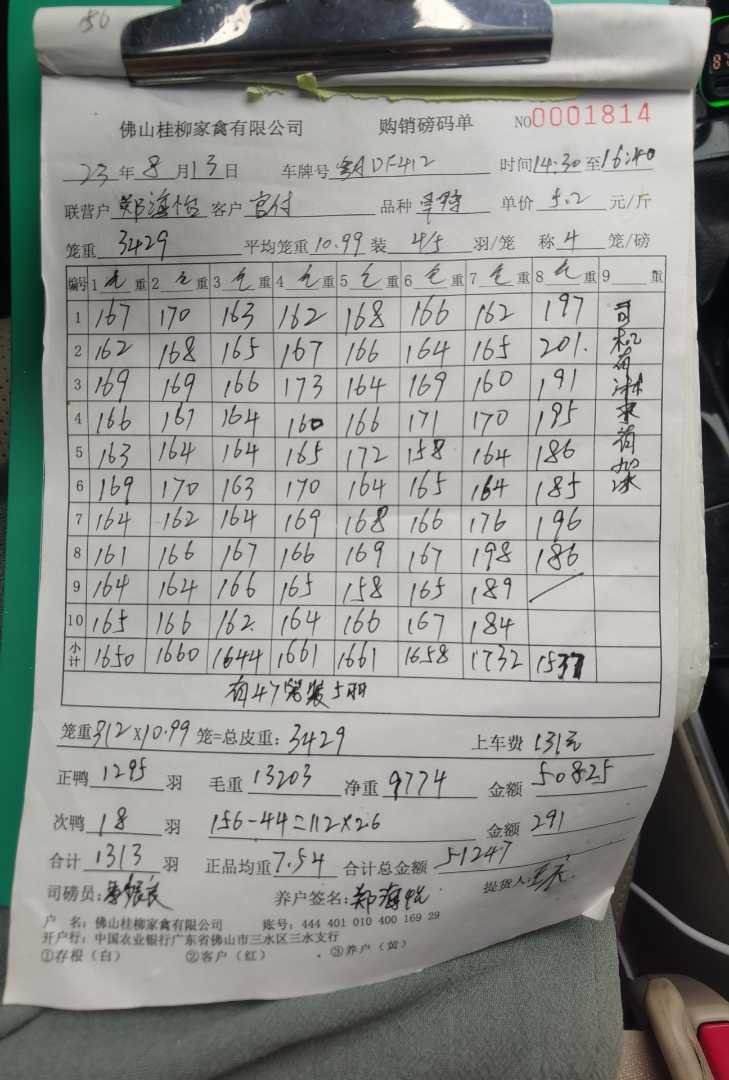 156
佛山桂柳家禽有限公司 购销磅码单 NO0001814
23年8月13日 车牌号 粤ADF412 时间14:30至16:40
联营户 郑海怡 客户 官付 品种 单价 5.2 元/斤
笼重 3429 平均笼重10.99装 4/5 羽/笼 称 4 笼/磅
编号 1 毛 重 2 毛 重 3 毛 重 4 毛 重 5 毛 重 6 毛 重 7 毛 重 8 毛 重 9 重
1 167 170 163 162 168 166 162 197
2 162 168 165 167 166 164 165 201.
3 169 169 166 173 164 169 160 191
4 166 167 164 160 166 171 170 195
5 163 164 164 165 172 158 164 186
6 169 170 163 170 164 165 164 185
7 164 162 164 169 168 166 176 196
8 161 166 167 166 169 167 198 186
9 164 164 166 165 158 165 189
10 165 166 162 164 166 167 184
小计 1650 1660 1644 1661 1661 1658 1732 1537
司机有淋水有加冰
有47笼装5羽
笼重312×10.99 笼=总皮重: 3429 上车费 131元
正鸭 1295 羽 毛重 13203 净重 9774 金额 50825
次鸭 18 羽 156-44=112×2.6 金额 291
合计 1313 羽 正品均重7.54 合计总金额 51247
司磅员: 养户签名: 提货人
户 名: 佛山桂柳家禽有限公司 账号: 444 401 010 400 169 29
开户行: 中国农业银行广东省佛山市三水区三水支行
①存根(白) ②客户(红) ③养户(黄)